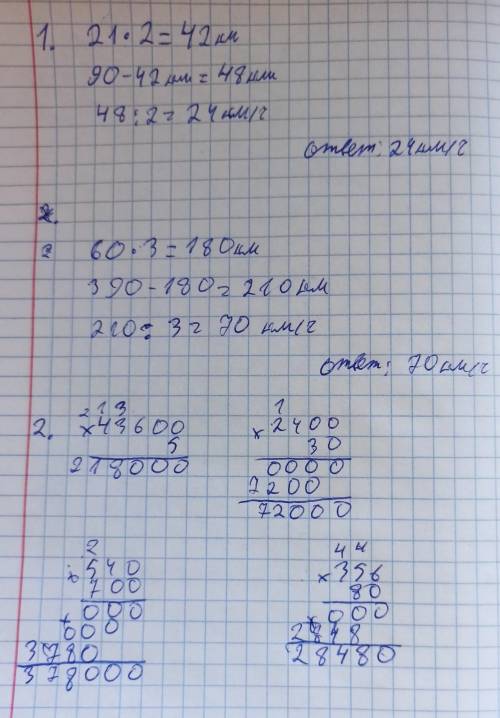 1. 21·2=42км
90-42км=48км
48:2=24км/ч
ответ: 24км/ч
2.
60·3=180км
390-180=210км
210:3=70 км/ч
ответ: 70км/ч
2. 213
×43600
5
218000
1
×2400
30
0000
7200
72000
2
×540
700
+000
000
3780
378000
44
×356
80
+000
2848
28480